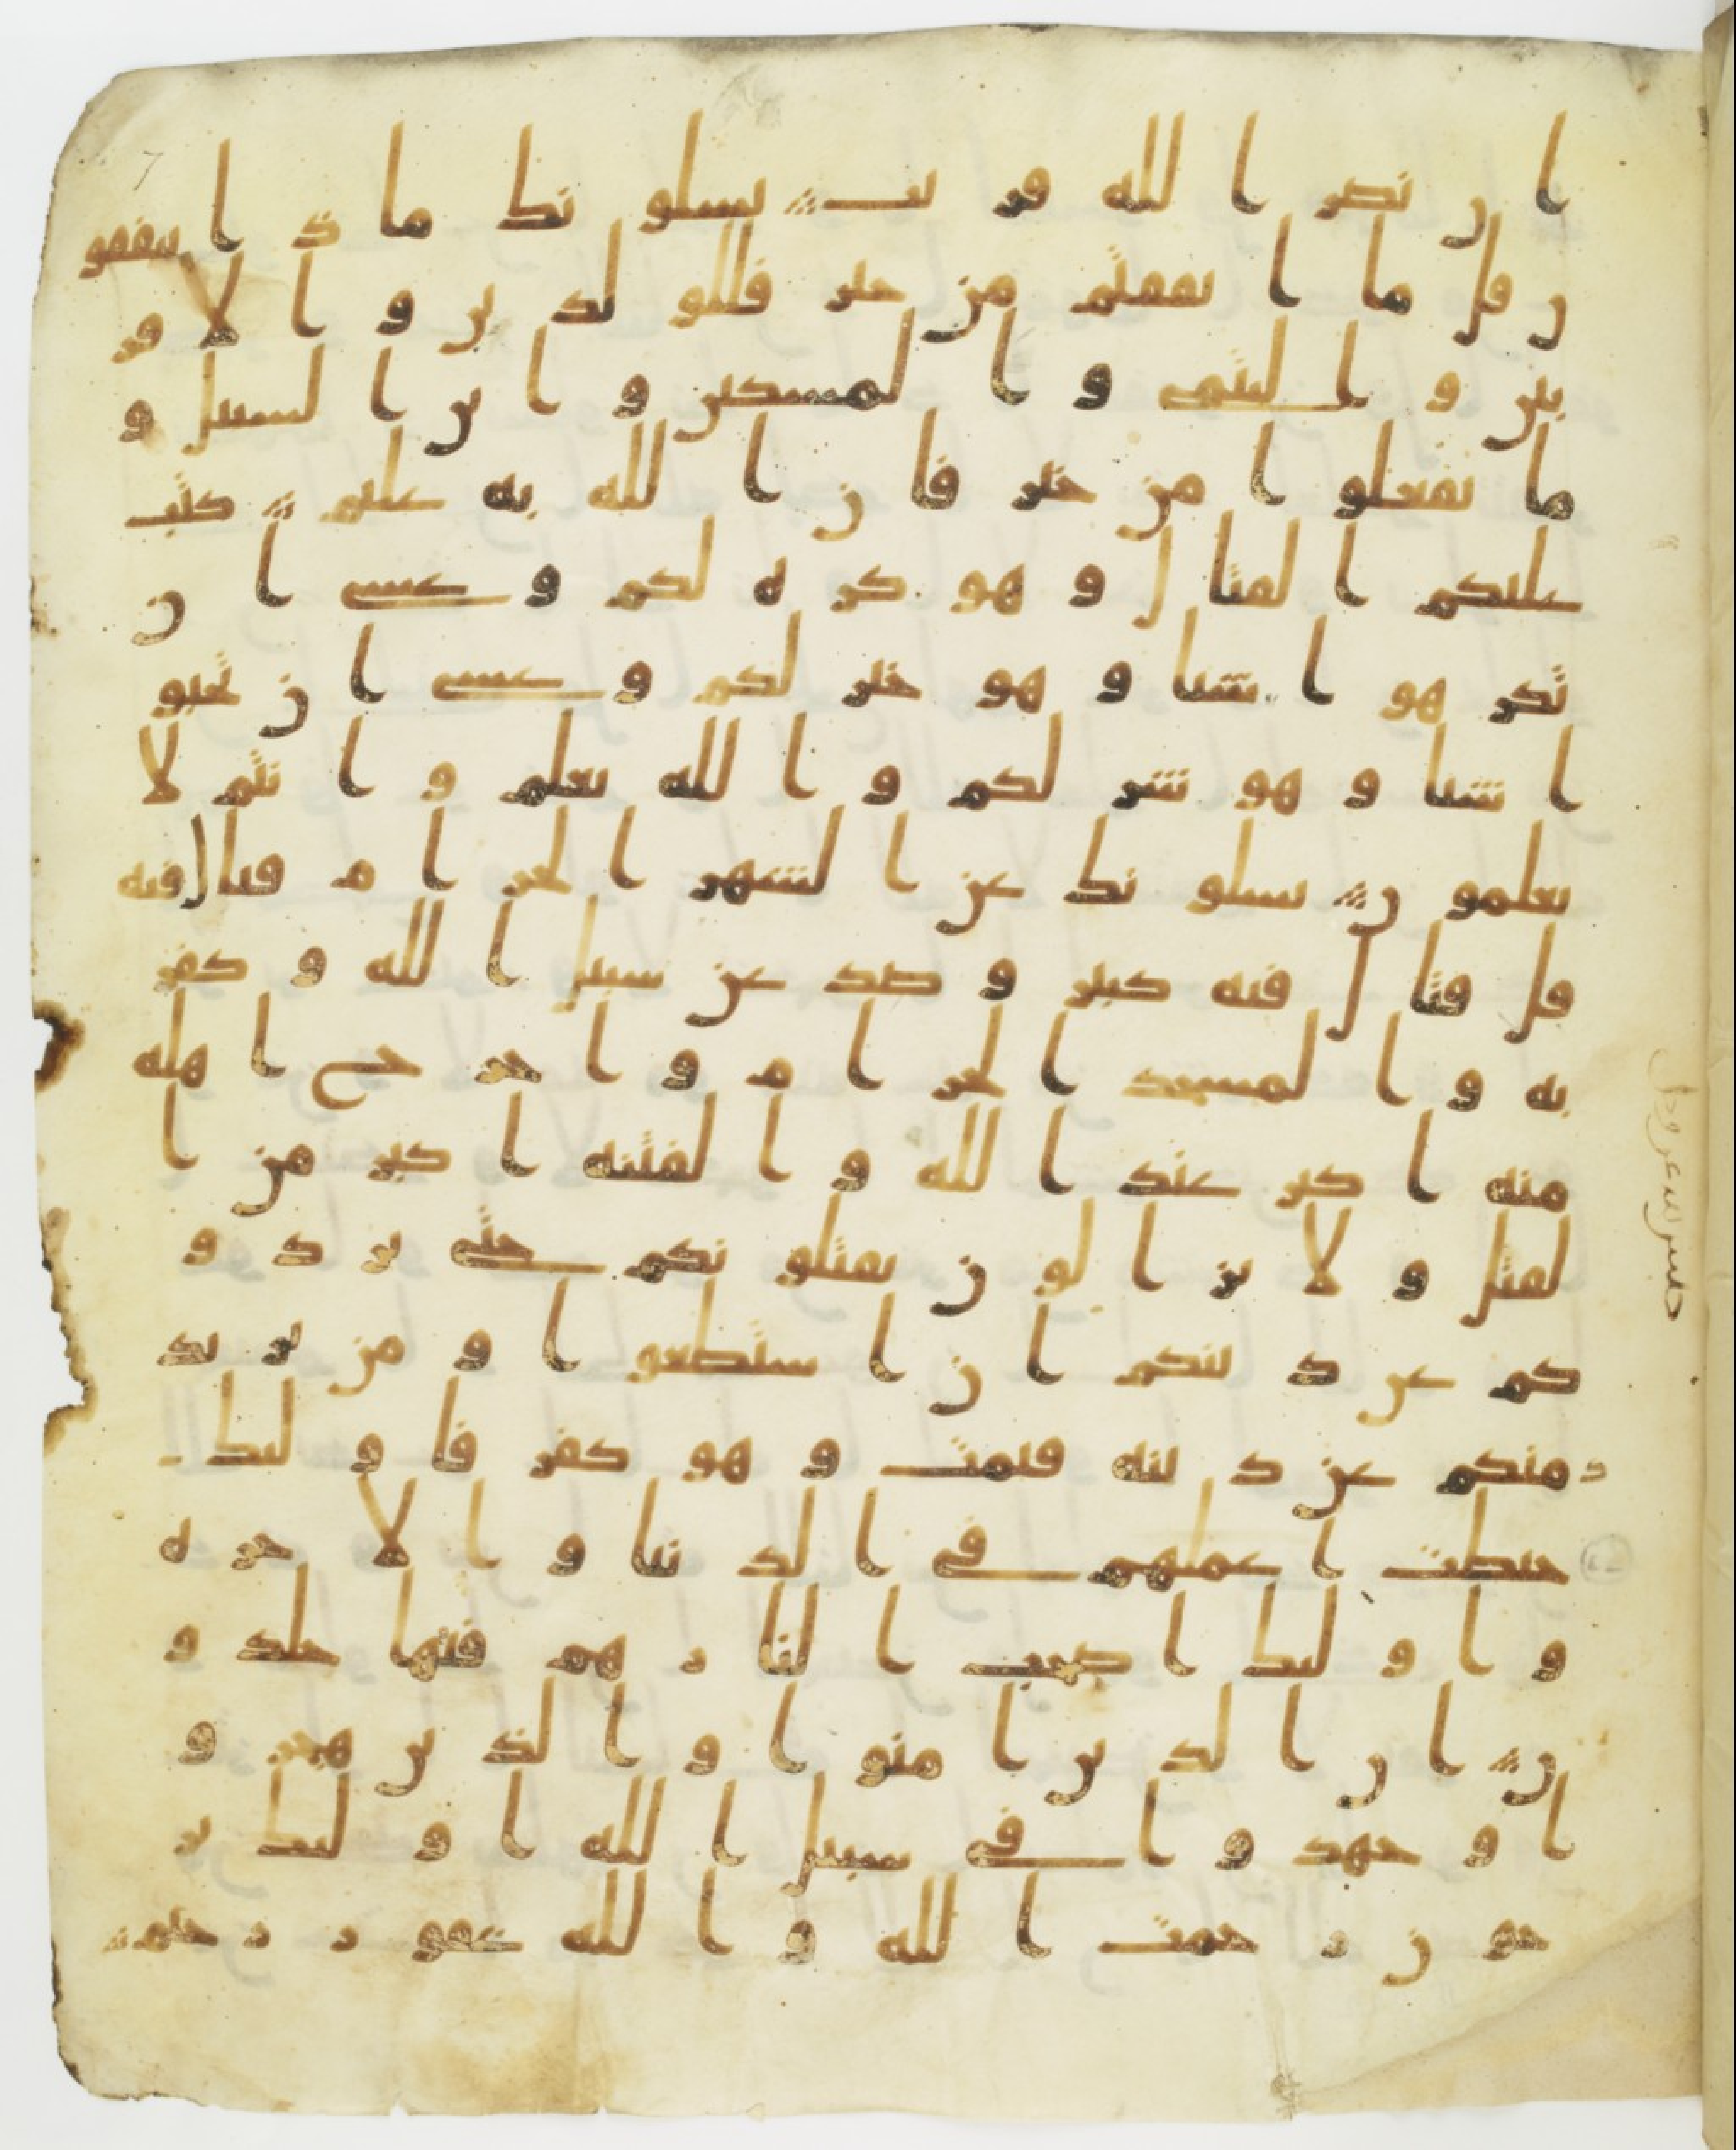 7
ان نصر الله قريب يسلونك ماذا ينفقو
ن قل ما انفقتم من خير فللولدين والاقر
بين واليتمى والمسكين وابن السبيل و
ما تفعلوا من خير فان الله به عليم كتب
عليكم القتال وهو كره لكم وعسى ان
تكرهوا شيا وهو خير لكم وعسى ان تحبو
ا شيا وهو شر لكم والله يعلم وانتم لا
تعلمون يسلونك عن الشهر الحرام قتال فيه
قل قتال فيه كبير وصد عن سبيل الله وكفر
به والمسجد الحرام واخرج اهله
منه اكبر عند الله والفتنه اكبر من ا
لقتل ولا يزالون يقتلونكم حتى يردو
كم عن دينكم ان استطعوا ومن يرتد
د منكم عن دينه فيمت وهو كفر فاوليك
حبطت اعملهم في الدنيا والاخره
واوليك اصحب النار هم فيها خلدو
ن ان الذين امنوا والذين هجرو
ا وجهدوا في سبيل الله اوليك ير
جون رحمت الله والله غفور رحيم
حبس لله عز وجل